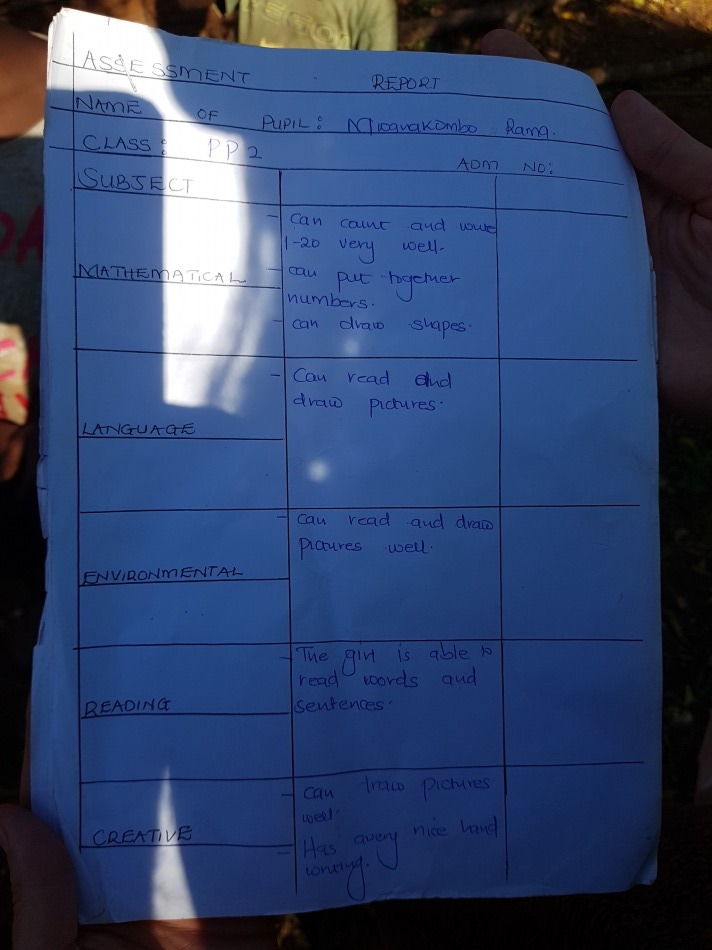 ASSESSMENT REPORT
NAME OF PUPIL: Mwanakombo Rama.
CLASS: PP2
ADM NO:
SUBJECT
MATHEMATICAL
- Can count and write
1-20 very well.
- can put together
numbers.
- can draw shapes.
LANGUAGE
- Can read and
draw pictures.
ENVIRONMENTAL
- can read and draw
pictures well.
READING
- The girl is able to
read words and
sentences.
CREATIVE
- can traw pictures
well.
- Has avery nice hand
writing.